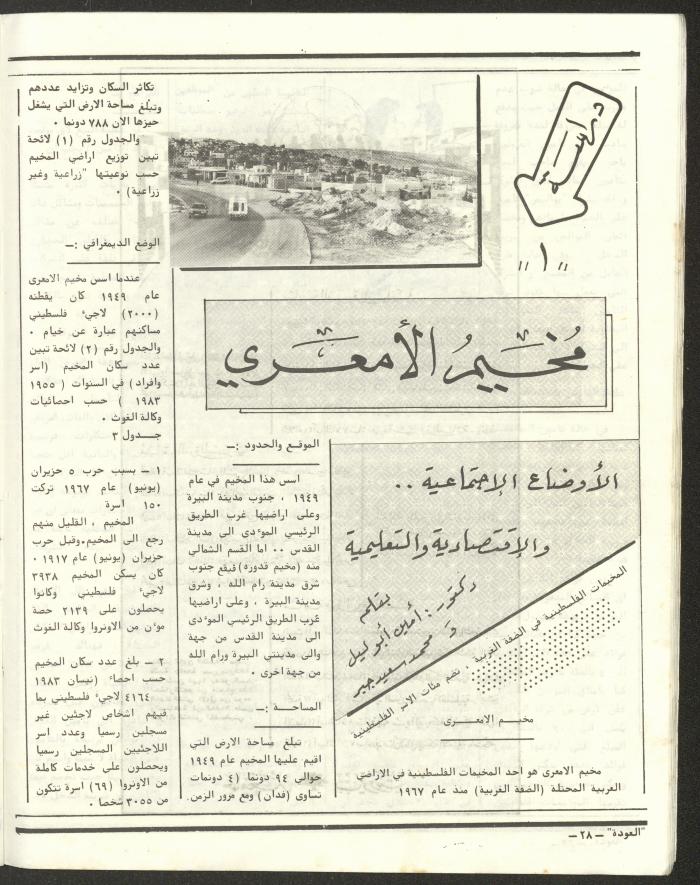 دراسة
"١"
مُخيَّمُ الأمعَري
الأوضاع الإجتماعية ..
والإقتصادية والتعليمية
بقلم
دكتور: أمين أبو ليل
و محمد سعيد جبر
المخيمات الفلسطينية في الضفة الغربية
تضم مئات الاسر الفلسطينية
مخيم الامعرى
مخيم الامعرى هو احد المخيمات الفلسطينية في الاراضي
العربية المحتلة (الضفة الغربية) منذ عام ١٩٦٧
الموقع والحدود :ـ
اسس هذا المخيم في عام
١٩٤٩ ، جنوب مدينة البيرة
وعلى اراضيها غرب الطريق
الرئيسي الموءدى الى مدينة
القدس .. اما القسم الشمالي
منه (مخيم قدوره) فيقع جنوب
شرق مدينة رام الله ، وشرق
مدينة البيرة ، وعلى اراضيها
غرب الطريق الرئيسي الموءدى
الى مدينة القدس من جهة
والى مدينتي البيرة ورام الله
من جهة اخرى .
المساحـــة :ـ
تبلغ مساحة الارض التي
اقيم عليها المخيم عام ١٩٤٩
حوالي ٩٤ دونما (٤ دونمات
تساوى (فدان) ومع مرور الزمن.
تكاثر السكان وتزايد عددهم
وتبلغ مساحة الارض التي يشغل
حيزها الان ٧٨٨ دونما .
والجدول رقم (١) لائحة
تبين توزيع اراضي المخيم
حسب نوعيتها "زراعية وغير
زراعية) .
الوضع الديمغرافي :ـ
عندما اسس مخيم الامعرى
عام ١٩٤٩ كان يقطنه
(٢٠٠٠) لاجيء فلسطيني
مساكنهم عبارة عن خيام .
والجدول رقم (٢) لائحة تبين
عدد سكان المخيم (اسر
وافراد) في السنوات ( ١٩٥٥
١٩٨٣ ) حسب احصائيات
وكالة الغوث .
جـــدول ٣
١ ـ بسبب حرب ٥ حزيران
(يونيو) عام ١٩٦٧ تركت
١٥٠ اسرة
المخيم ، القليل منهم
رجع الى المخيم.وقبل حرب
حزيران (يونيو) عام ١٩١٧ .
كان يسكن المخيم ٣٩٣٨
لاجيء فلسطيني وكانوا
يحصلون على ٢١٣٩ حصة
موءن من الاونروا وكالة الغوث
٢ ـ بلغ عدد سكان المخيم
حسب احصاء (نيسان ١٩٨٣
٤١٦٤ لاجيء فلسطيني بما
فيهم اشخاص لاجئين غير
مسجلين رسميا وعدد اسر
اللاجئيين المسجلين رسميا
ويحصلون على خدمات كاملة
من الاونروا (٦٩) اسرة تتكون
من ٣٠٥٥ شخصا .
"العودة" ــ ٢٨ ــ